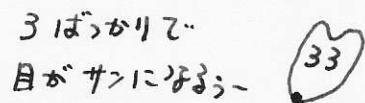 3ばっかりで
目がサンになるぅー
33